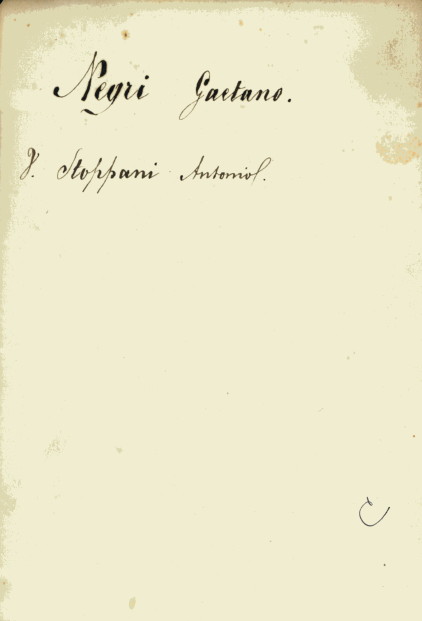 Negri Gaetano.
V. Stoppani Antonio.
C